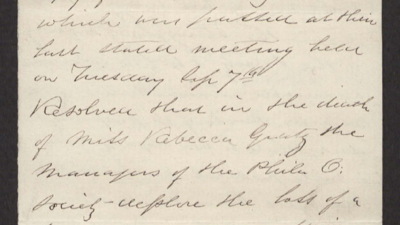 which was passed at their
last stated meeting held
on Tuesday Sep 7th
Resolved that in the death
of Miss Rebecca Gratz the
Managers of the Phila O:
Society deplore the loss of a